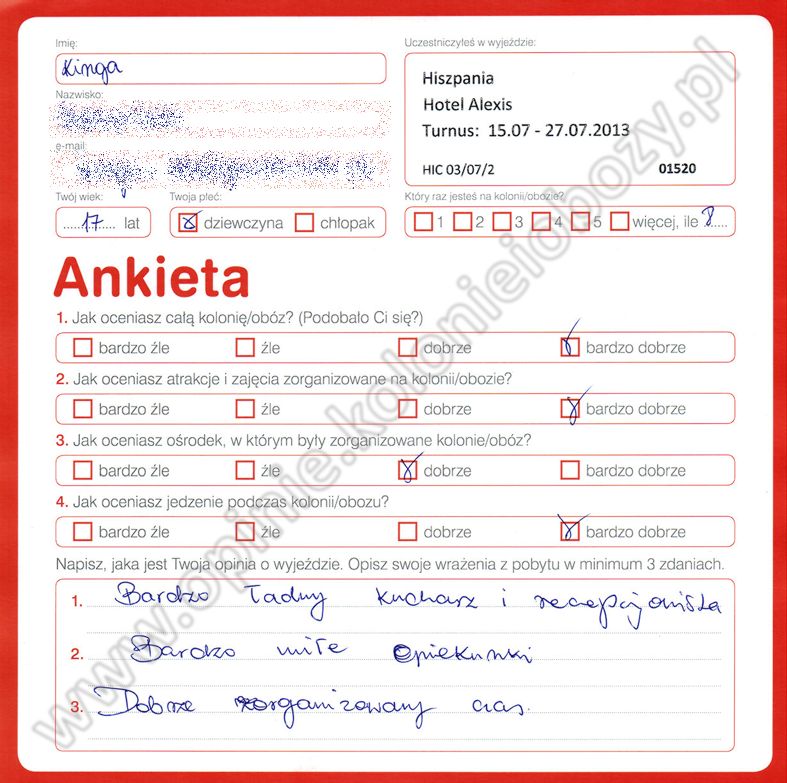 Imię:
Uczestniczyłeś w wyjeździe:
Kinga
Hiszpania
Hotel Alexis
Turnus: 15.07 - 27.07.2013
HIC 03/07/2 01520
Nazwisko:
e-mail:
Twój wiek:
Twoja płeć:
Który raz jesteś na kolonii/obozie?
17 lat
dziewczyna chłopak
1 2 3 4 5 więcej, ile 8
Ankieta
1. Jak oceniasz całą kolonię/obóz? (Podobało Ci się?)
bardzo źle źle dobrze bardzo dobrze
2. Jak oceniasz atrakcje i zajęcia zorganizowane na kolonii/obozie?
bardzo źle źle dobrze bardzo dobrze
3. Jak oceniasz ośrodek, w którym były zorganizowane kolonie/obóz?
bardzo źle źle dobrze bardzo dobrze
4. Jak oceniasz jedzenie podczas kolonii/obozu?
bardzo źle źle dobrze bardzo dobrze
Napisz, jaka jest Twoja opinia o wyjeździe. Opisz swoje wrażenia z pobytu w minimum 3 zdaniach.
1. Bardzo ładny kucharz i recepcjonista
2. Bardzo miłe opiekunki
3. Dobrze zorganizowany czas.
www.opinie.kolonieiobozy.pl